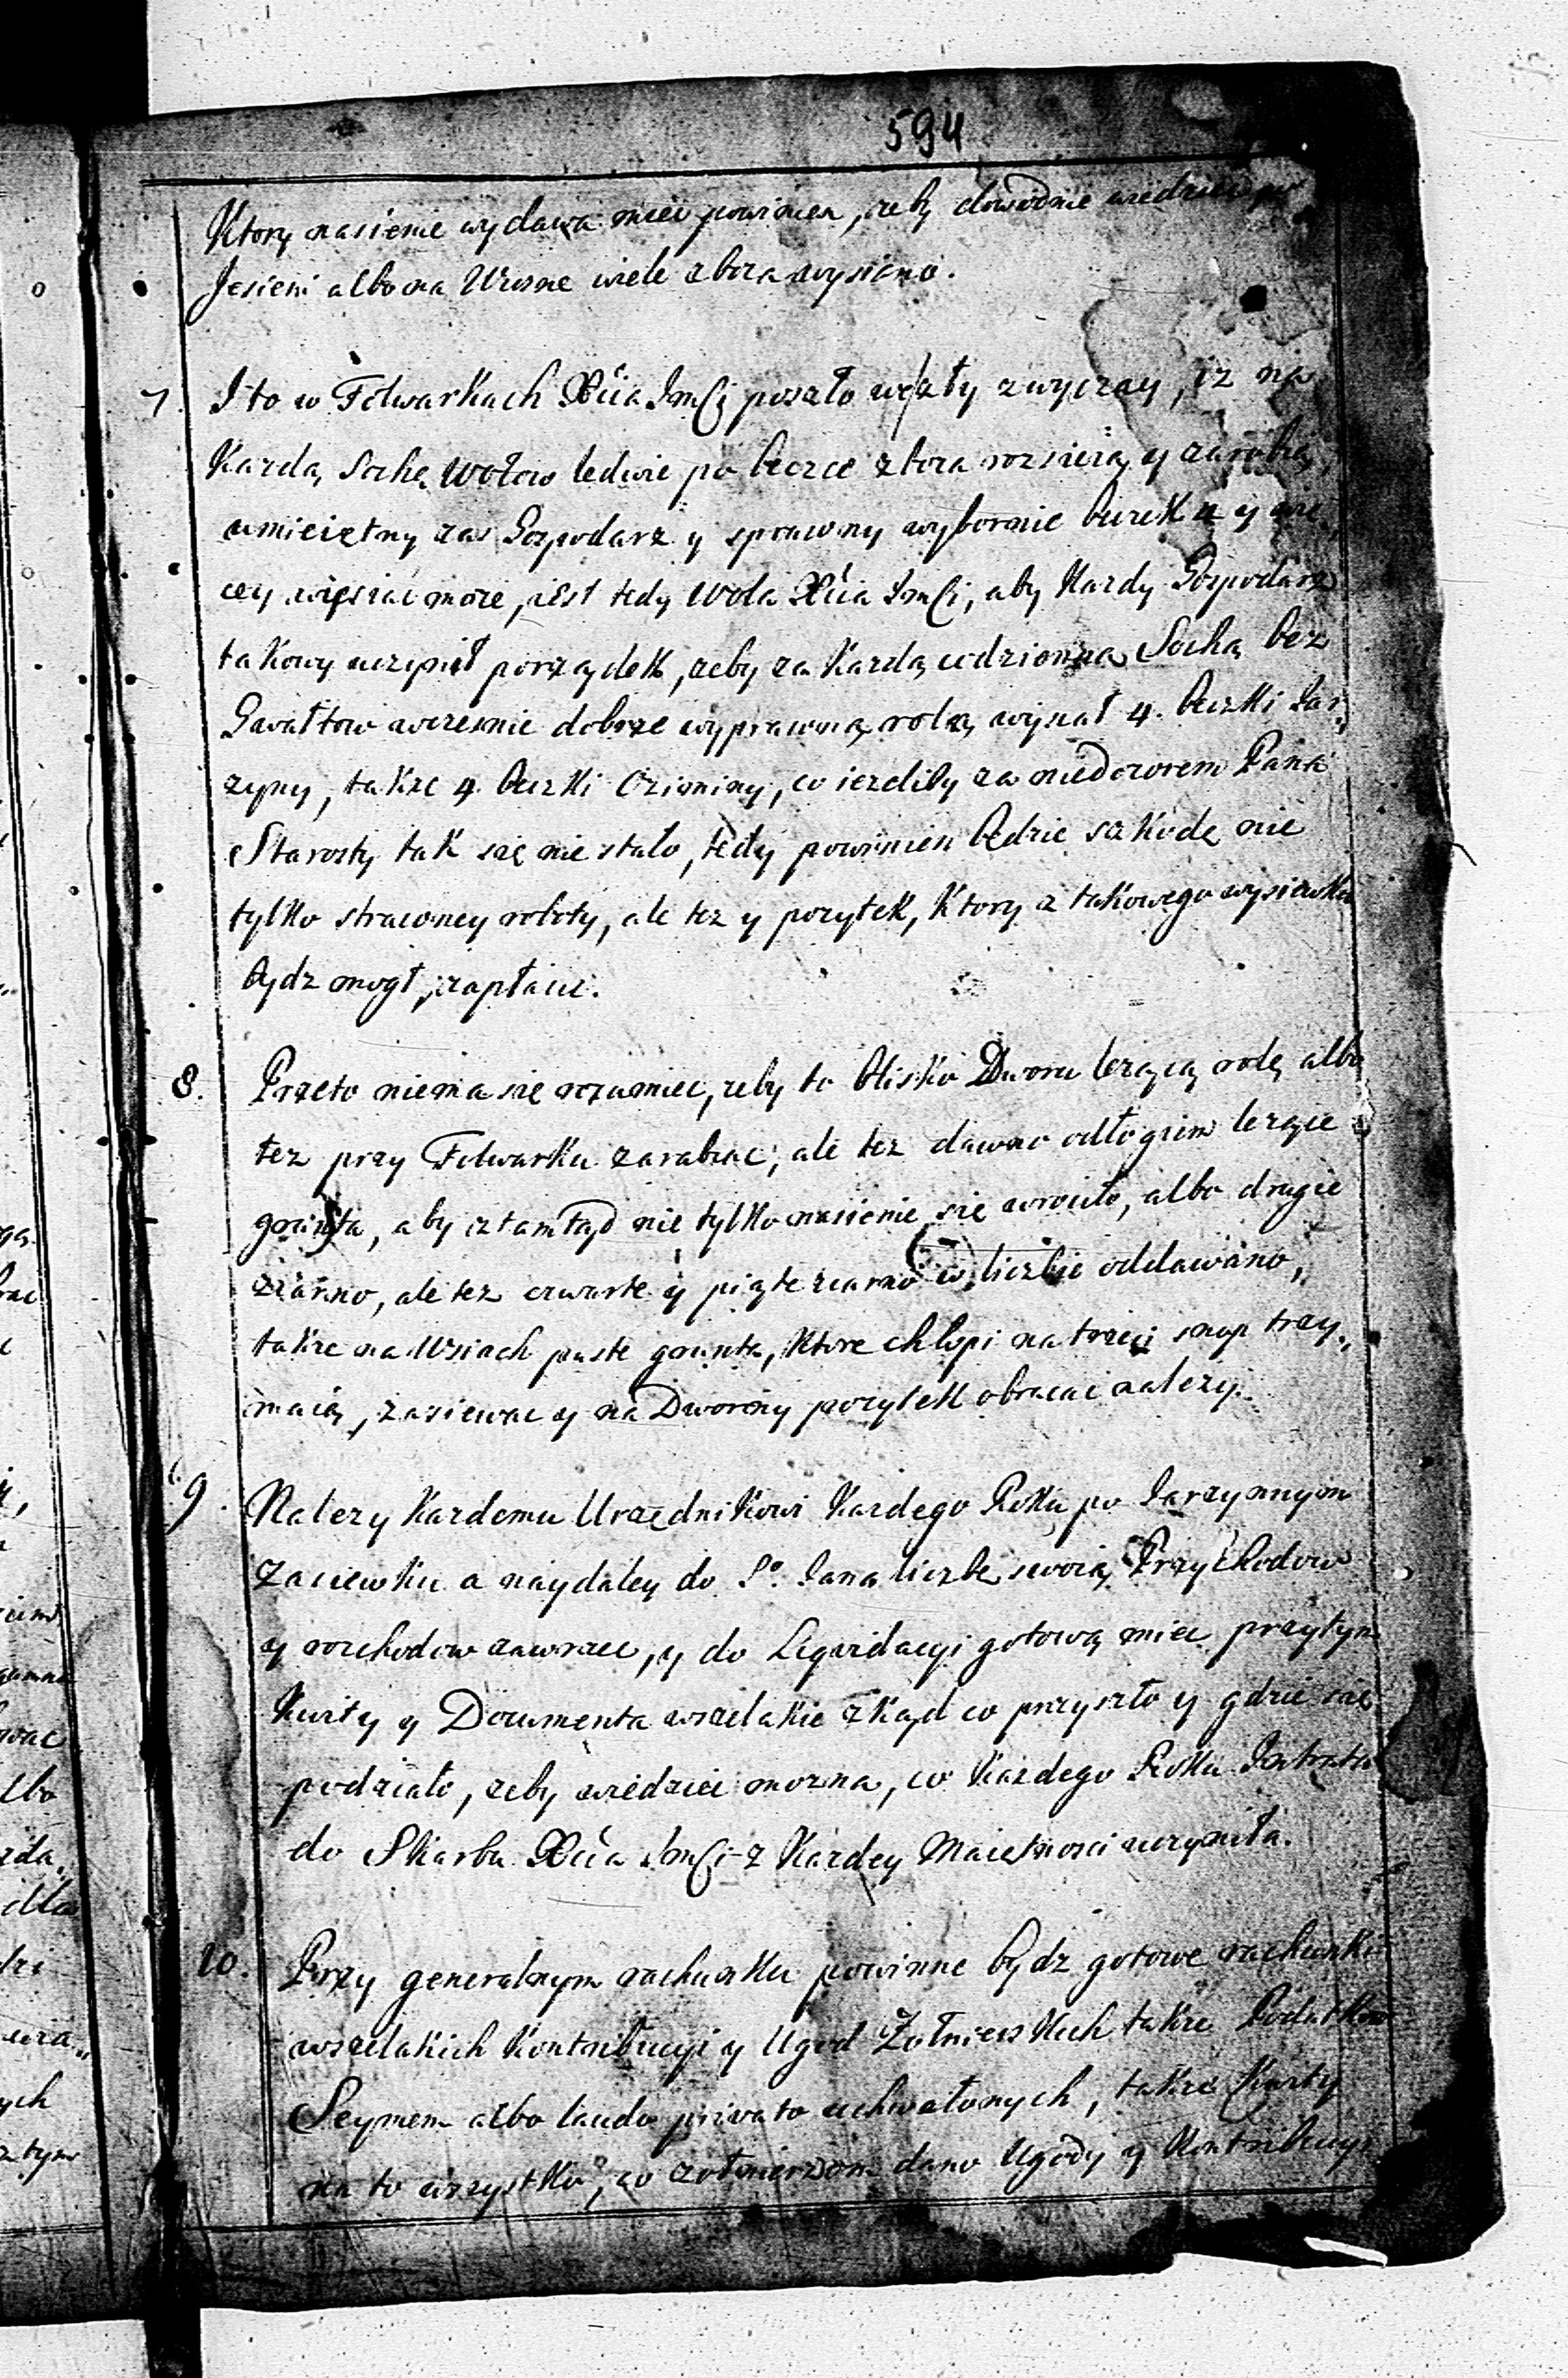 594
Ktory nasienie wydawa miec powinien, zeby dowodnie wiedziec po
Jesieni albo na Wiosne wiele zboza wysiano.
7. I to w Folwarkach Xcia Jmci poszło w zły zwyczay, iz na
Kazdą Sochę Wołow ledwie po beczce zboza rozsieią y zarobią,
umieiętny zas Gospodarz y sprawny wybornie beczek 4 y wię,
cey wysiac moze, iest tedy Wola Xcia Jmci, aby Kazdy Gospodarz
takowy uczynił porządek, zeby za Kazdą codzienną Sochą bez
Gwałtow wczesnie dobrze wyprawną rolą wysiał 4. beczki Jar,
zyny, takze 4 beczki Oziminy, co iezeliby za niedozorem Pana
Starosty tak się nie stało, tedy powinien będzie szkodę nie
tylko straconey roboty, ale tez y pozytek, Ktory z takowego wysiewku
bydz mogł, zapłacic.
8. Przeto niema się rozumiec, zeby to blisko Dworu lezącą rolę albo
tez przy Folwarku zarabiac, ale tez dawno odłogiem lezące
grunta, aby ztamtąd nie tylko nasienie się wrociło, albo drugie
ziarno, ale tez czwarte y piąte ziarno w liczbie oddawano,
takze na Wsiach puste grunta, Ktore chłopi na trzeci snop trzy,
maią, zasiewac y na Dworny pozytek obracac nalezy.
9. Nalezy Kazdemu Urzędnikowi Kazdego Roku po Jarzynnym
Zasiewku a naydaley do So. Jana liczbę swoią Przychodow
y rozchodow zawrzec, y do Liquidacyi gotową miec przytym
Kwity y Documenta wszelakie zkąd co przyszło y gdzie się
podziało, zeby wiedziec mozna, co Kazdego Roku Intrata
do Skarbu Xcia Jmci z Kazdey Maietnosci uczyniła.
10. Przy generalnym rachunku powinne bydz gotowe rachunki
wszelakich Kontribucyi y Ugod Zołnierskich takze Podatkow
Seymem albo laudo privato uchwalonych, takze Kwity
na to wszystko, co zołnierzom dano Ugody y Kontribucyi